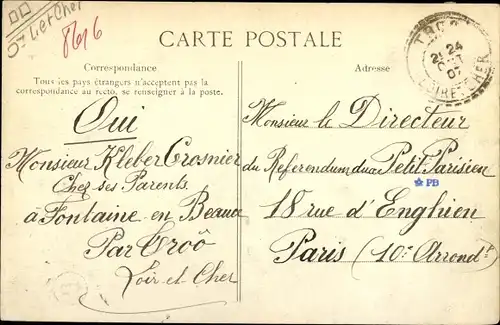 Dt Loir et Cher
8616
CARTE POSTALE
Correspondance
Tous les pays étrangers n'acceptent pas la
correspondance au recto, se renseigner à la poste.
Oui
Monsieur Kleber Crosnier
Chez ses Parents
à Fontaine en Beauce
Par Troô
Loir et Cher
Adresse
TROO
24
OCT
07
LOIR-ET-CHER
Monsieur le Directeur
du Referendum du Petit Parisien
PB
18 rue d'Enghien
Paris (10e Arrondt